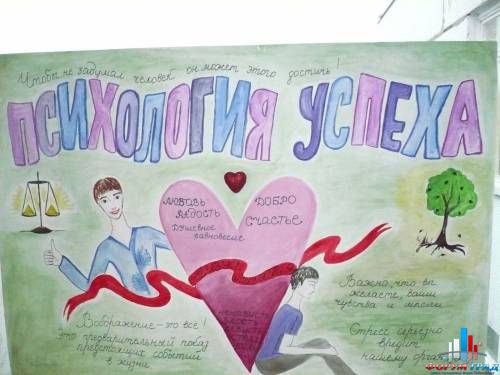 Чтобы не задумал человек он может этого достичь!
ПСИХОЛОГИЯ УСПЕХА
ЛЮБОВЬ
РАДОСТЬ
ДУШЕВНОЕ
РАВНОВЕСИЕ
ДОБРО
СЧАСТЬЕ
НЕНАВИСТЬ
ЗЛОСТЬ
Воображение-это всё!
Это предварительный показ
предстоящих событий
в жизни
Важно, что вы
желаете, ваши
чувства и мысли
Стресс серьезно
вредит
нашему